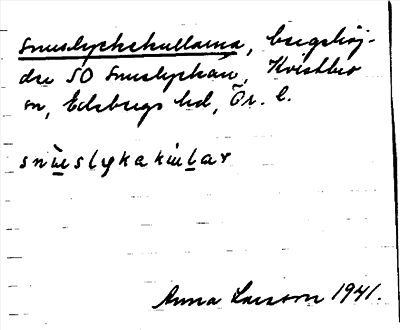 Snuslyckekullarna, bergshöj-
der SO Snuslyckan, Kvistbro
sn, Edsbergs hd, Ör. l.
snuslykakular
Anna Larsson 1941.